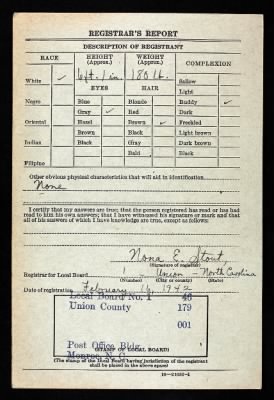 REGISTRAR'S REPORT
DESCRIPTION OF REGISTRANT
RACE HEIGHT (Approx.) WEIGHT (Approx.) COMPLEXION
White ✓ 6ft. 1 in. 180 lb. Sallow
Light
EYES HAIR Ruddy ✓
Negro Blue Blonde Dark
Gray ✓ Red Freckled
Oriental Hazel Brown ✓ Light brown
Brown Black Dark brown
Indian Black Gray Black
Bald
Filipino
Other obvious physical characteristics that will aid in identification
None
I certify that my answers are true; that the person registered has read or has
had read to him his own answers; that I have witnessed his signature or mark and that
all of his answers of which I have knowledge are true, except as follows:
Nona E. Stout,
(Signature of registrar)
Registrar for Local Board 1 Union - North Carolina
(Number) (City or county) (State)
Date of registration February 16, 1942
Local Board No. 1 46
Union County 179
001
Post Office Bldg.
Monroe, N. C.
(STAMP OF LOCAL BOARD)
(The stamp of the Local Board having jurisdiction of the registrant
shall be placed in the above space)